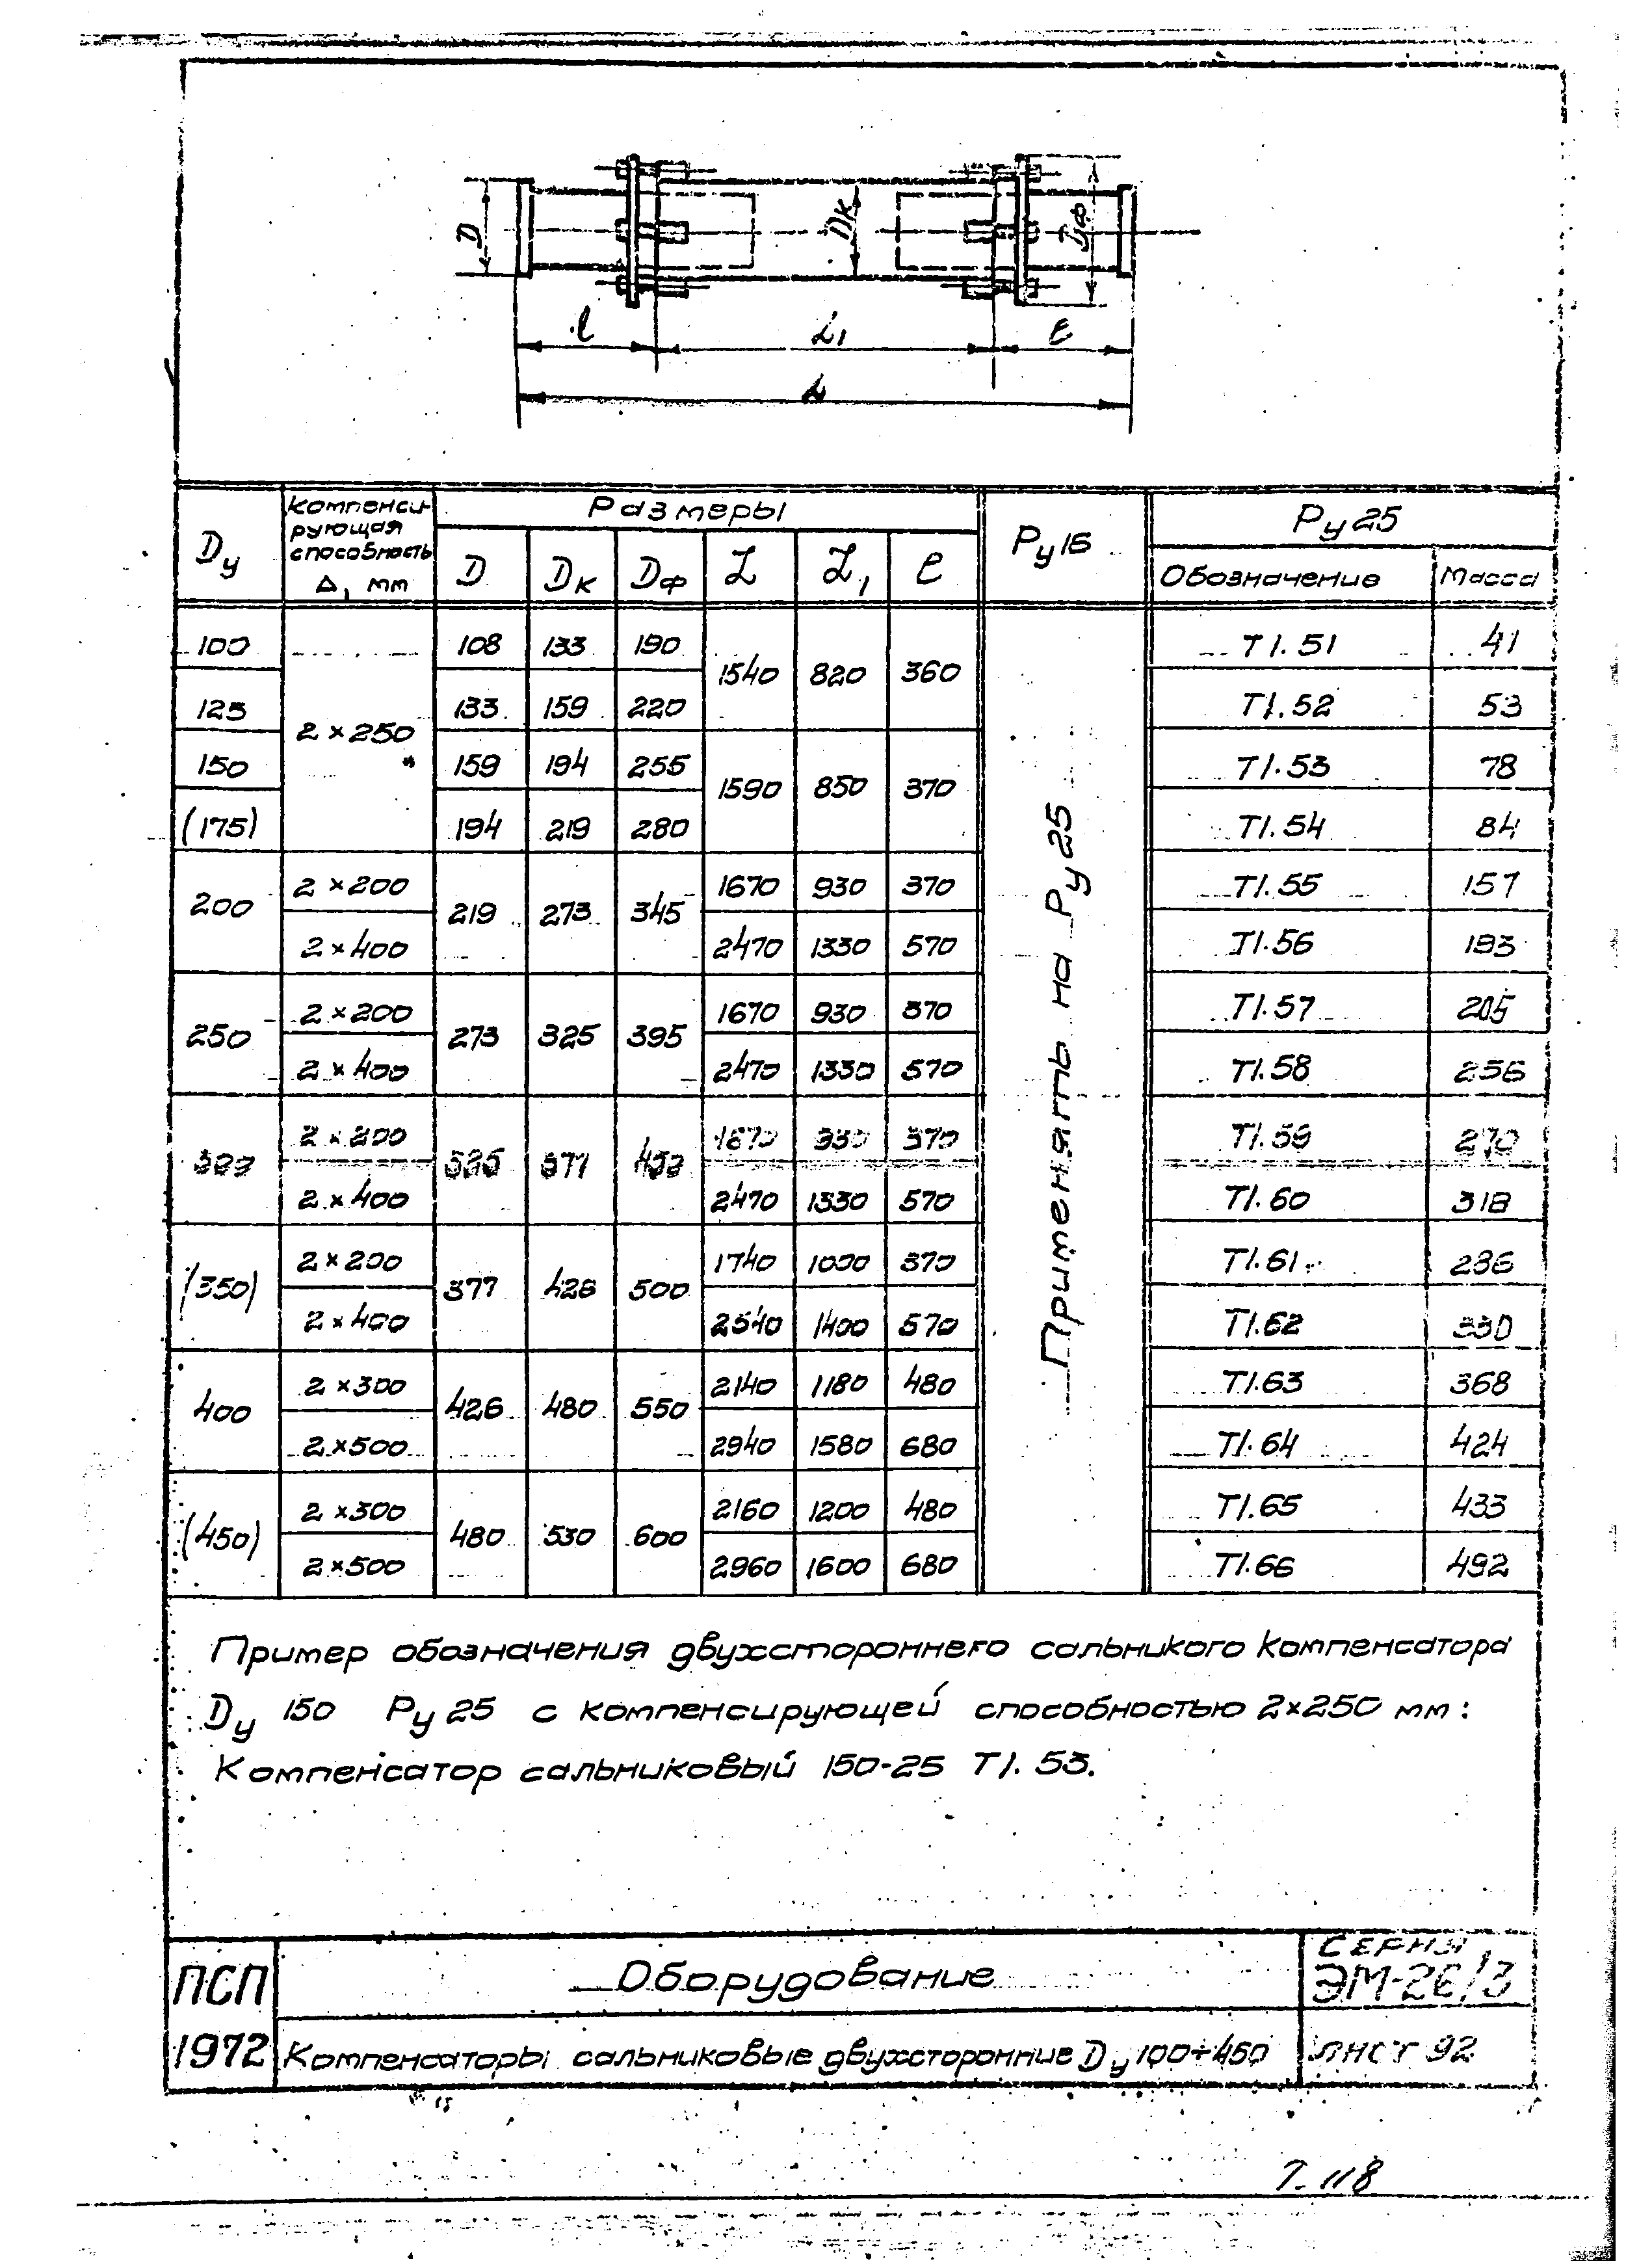 D Dк Dф
l L1 l
L
Dу Компенсирующая способность Δ, мм Размеры Ру16 Ру25
D Dк Dф L L1 l Обозначение Масса
100 2×250 108 133 190 1540 820 360 Применять на Ру25 Т1.51 41
125 133 159 220 Т1.52 53
150 159 194 255 1590 850 370 Т1.53 78
(175) 194 219 280 Т1.54 84
200 2×200 219 273 345 1670 930 370 Т1.55 157
2×400 2470 1330 570 Т1.56 193
250 2×200 273 325 395 1670 930 370 Т1.57 205
2×400 2470 1330 570 Т1.58 256
2×200 377 930 370 Т1.59 270
2×400 2470 1330 570 Т1.60 318
(350) 2×200 377 426 500 1740 1000 370 Т1.61
2×400 2540 1400 570 Т1.62 330
400 2×300 426 480 550 2140 1180 480 Т1.63 368
2×500 2940 1580 680 Т1.64 424
(450) 2×300 480 530 600 2160 1200 480 Т1.65 433
2×500 2960 1600 680 Т1.66 492
Пример обозначения двухстороннего сальникого компенсатора
Dу 150 Ру 25 с компенсирующей способностью 2×250 мм:
Компенсатор сальниковый 150-25 Т1.53.
ПСП Оборудование СЕРИЯ ЭМ-26/3
1972 Компенсаторы сальниковые двухсторонние Dу 100÷450 ЛИСТ 92
7-118